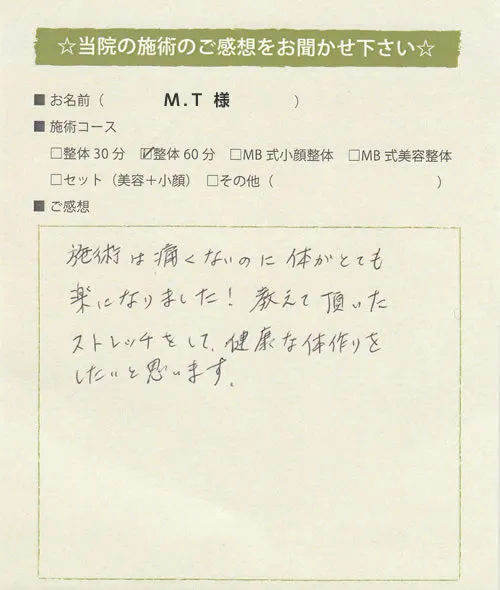 ☆当院の施術のご感想をお聞かせ下さい☆
■ お名前（　M.T 様　）
■ 施術コース
□整体 30 分　☑整体 60 分　□MB 式小顔整体　□MB 式美容整体
□セット（美容＋小顔）　□その他（　）
■ ご感想
施術は痛くないのに体がとても
楽になりました！教えて頂いた
ストレッチをして、健康な体作りを
したいと思います。